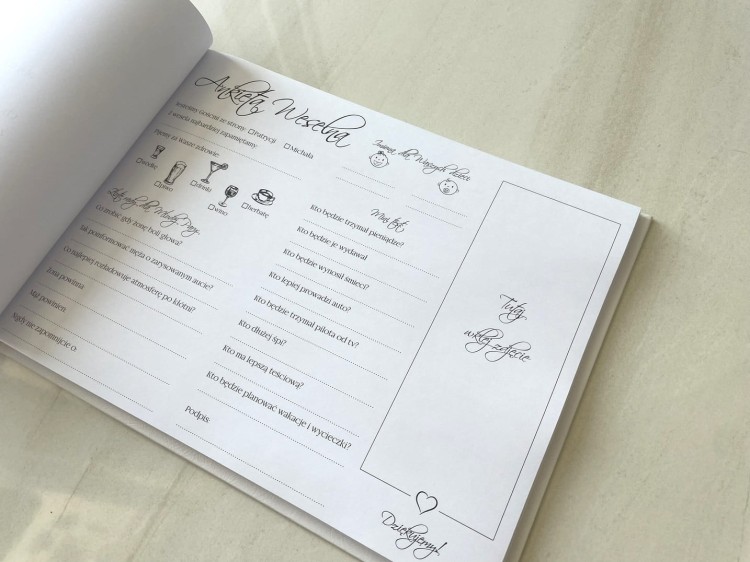 Ankieta Weselna
Jesteśmy Gośćmi ze strony: Patrycji Michała
Z wesela najbardziej zapamiętamy:
Pijemy za Wasze zdrowie:
wódkę
piwo
drinka
wino
herbatę
Złote rady dla Młodej Pary
Co zrobić gdy żonę boli głowa?
Jak poinformować męża o zarysowanym aucie?
Co najlepiej rozładowuje atmosferę po kłótni?
Żona powinna
Mąż powinien
Nigdy nie zapomnijcie o
Imiona dla Waszych dzieci
Mini test
Kto będzie trzymał pieniądze?
Kto będzie je wydawał
Kto będzie wynosił śmieci?
Kto lepiej prowadzi auto?
Kto będzie trzymał pilota od tv?
Kto dłużej śpi?
Kto ma lepszą teściową?
Kto będzie planować wakacje i wycieczki?
Podpis:
Tutaj
wklej zdjęcie
Dziękujemy!